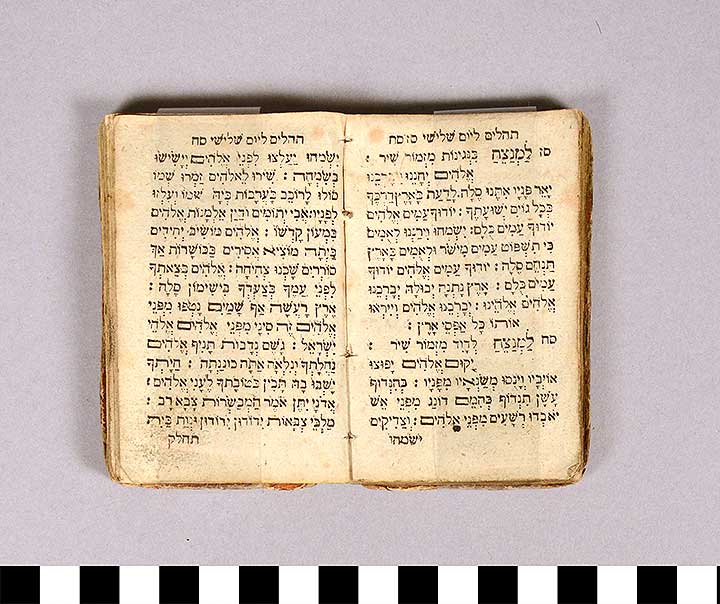 תהלים ליום שלישי סז סח
סז לַמְנַצֵּחַ בִּנְגִינוֹת מִזְמוֹר שִׁיר :
אֱלֹהִים יְחָנֵּנוּ וִיבָרְכֵנוּ
יָאֵר פָּנָיו אִתָּנוּ סֶלָה: לָדַעַת בָּאָרֶץ דַּרְכֶּךָ
בְּכָל גּוֹיִם יְשׁוּעָתֶךָ: יוֹדוּךָ עַמִּים אֱלֹהִים
יוֹדוּךָ עַמִּים כֻּלָּם: יִשְׂמְחוּ וִירַנְּנוּ לְאֻמִּים
כִּי תִשְׁפּוֹט עַמִּים מִישֹׁר וּלְאֻמִּים בָּאָרֶץ
תַּנְחֵם סֶלָה: יוֹדוּךָ עַמִּים אֱלֹהִים יוֹדוּךָ
עַמִּים כֻּלָּם: אֶרֶץ נָתְנָה יְבוּלָהּ יְבָרְכֵנוּ
אֱלֹהִים אֱלֹהֵינוּ: יְבָרְכֵנוּ אֱלֹהִים וְיִירְאוּ
אוֹתוֹ כָּל אַפְסֵי אָרֶץ:
סח לַמְנַצֵּחַ לְדָוִד מִזְמוֹר שִׁיר :
יָקוּם אֱלֹהִים יָפוּצוּ
אוֹיְבָיו וְיָנֻסוּ מְשַׂנְאָיו מִפָּנָיו: כְּהִנְדּוֹף
עָשָׁן תִּנְדּוֹף כְּהִמֵּס דּוֹנַג מִפְּנֵי אֵשׁ
יֹאבְדוּ רְשָׁעִים מִפְּנֵי אֱלֹהִים: וְצַדִּיקִים
ישמחו
תהלים ליום שלישי סח
יִשְׂמְחוּ יַעַלְצוּ לִפְנֵי אֱלֹהִים וְיָשִׂישׂוּ
בְשִׂמְחָה: שִׁירוּ לֵאלֹהִים זַמְּרוּ שְׁמוֹ
סוֹלּוּ לָרוֹכֵב בָּעֲרָבוֹת בְּיָהּ שְׁמוֹ וְעִלְזוּ
לְפָנָיו: אֲבִי יְתוֹמִים וְדַיַּן אַלְמָנוֹת אֱלֹהִים
בִּמְעוֹן קָדְשׁוֹ: אֱלֹהִים מוֹשִׁיב יְחִידִים
בַּיְתָה מוֹצִיא אֲסִירִים בַּכּוֹשָׁרוֹת אַךְ
סוֹרֲרִים שָׁכְנוּ צְחִיחָה: אֱלֹהִים בְּצֵאתְךָ
לִפְנֵי עַמֶּךָ בְּצַעְדְּךָ בִישִׁימוֹן סֶלָה:
אֶרֶץ רָעָשָׁה אַף שָׁמַיִם נָטְפוּ מִפְּנֵי
אֱלֹהִים זֶה סִינַי מִפְּנֵי אֱלֹהִים אֱלֹהֵי
יִשְׂרָאֵל: גֶּשֶׁם נְדָבוֹת תָּנִיף אֱלֹהִים
נַחֲלָתְךָ וְנִלְאָה אַתָּה כוֹנַנְתָּהּ: חַיָּתְךָ
יָשְׁבוּ בָהּ תָּכִין בְּטוֹבָתְךָ לֶעָנִי אֱלֹהִים:
אֲדֹנָי יִתֵּן אֹמֶר הַמְבַשְּׂרוֹת צָבָא רָב:
מַלְכֵי צְבָאוֹת יִדּוֹדוּן יִדּוֹדוּן וּנְוַת בַּיִת
תחלק